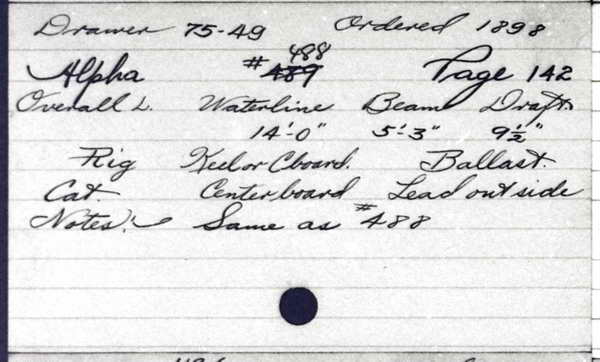 Drawer 75-49 Ordered 1898
488
Alpha #489 Page 142
Overall L. Waterline Beam Draft.
14'-0" 5'-3" 9½"
Rig Keel or Cboard. Ballast.
Cat. Centerboard Lead outside
Notes:- Same as #488